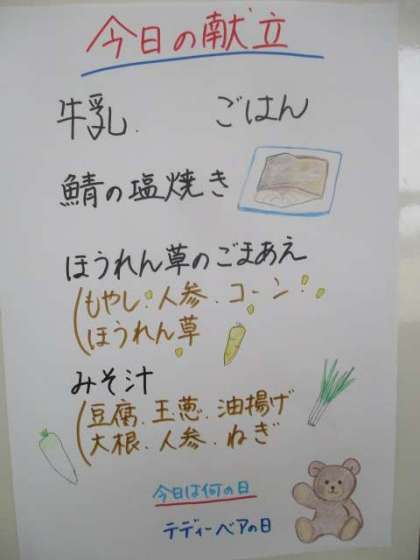 今日の献立
牛乳. ごはん
鯖の塩焼き
ほうれん草のごまあえ
(もやし. 人参. コーン.
ほうれん草
みそ汁
(豆腐. 玉葱. 油揚げ
大根. 人参. ねぎ
今日は何の日
テディーベアの日